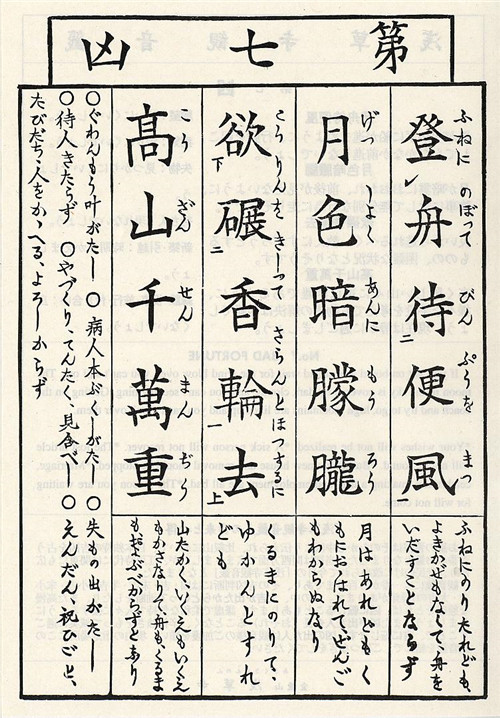 第七凶
ふねに のぼって びん ぷうを まつ
登レ舟待二便風一
ふねにのりたれども、
よきかぜもなくて、舟を
いだすことならず
げつ しよく あんに もう ろう
月色暗朦朧
月はあれどもく
もにおほはれて、ぜんご
もわからぬなり
こうりんを きしつて さらんとほつるに
欲下碾二香輪一去上
くるまにのりて、
ゆかんとすれ
ども、
こう ざん せん まん ぢう
高山千萬重
山たかく、いくえもいくえ
もかさなりて、舟も、くるま
もおよぶべからずとあり
○ぐわんもう叶がたし ○病人本ぶくしがたし ○失もの出がたし
○待人きたらず ○やづくり、てんたく、見合べし ○えんだん、祝ひごと、
たびだち、人をかゝへる、よろしからず